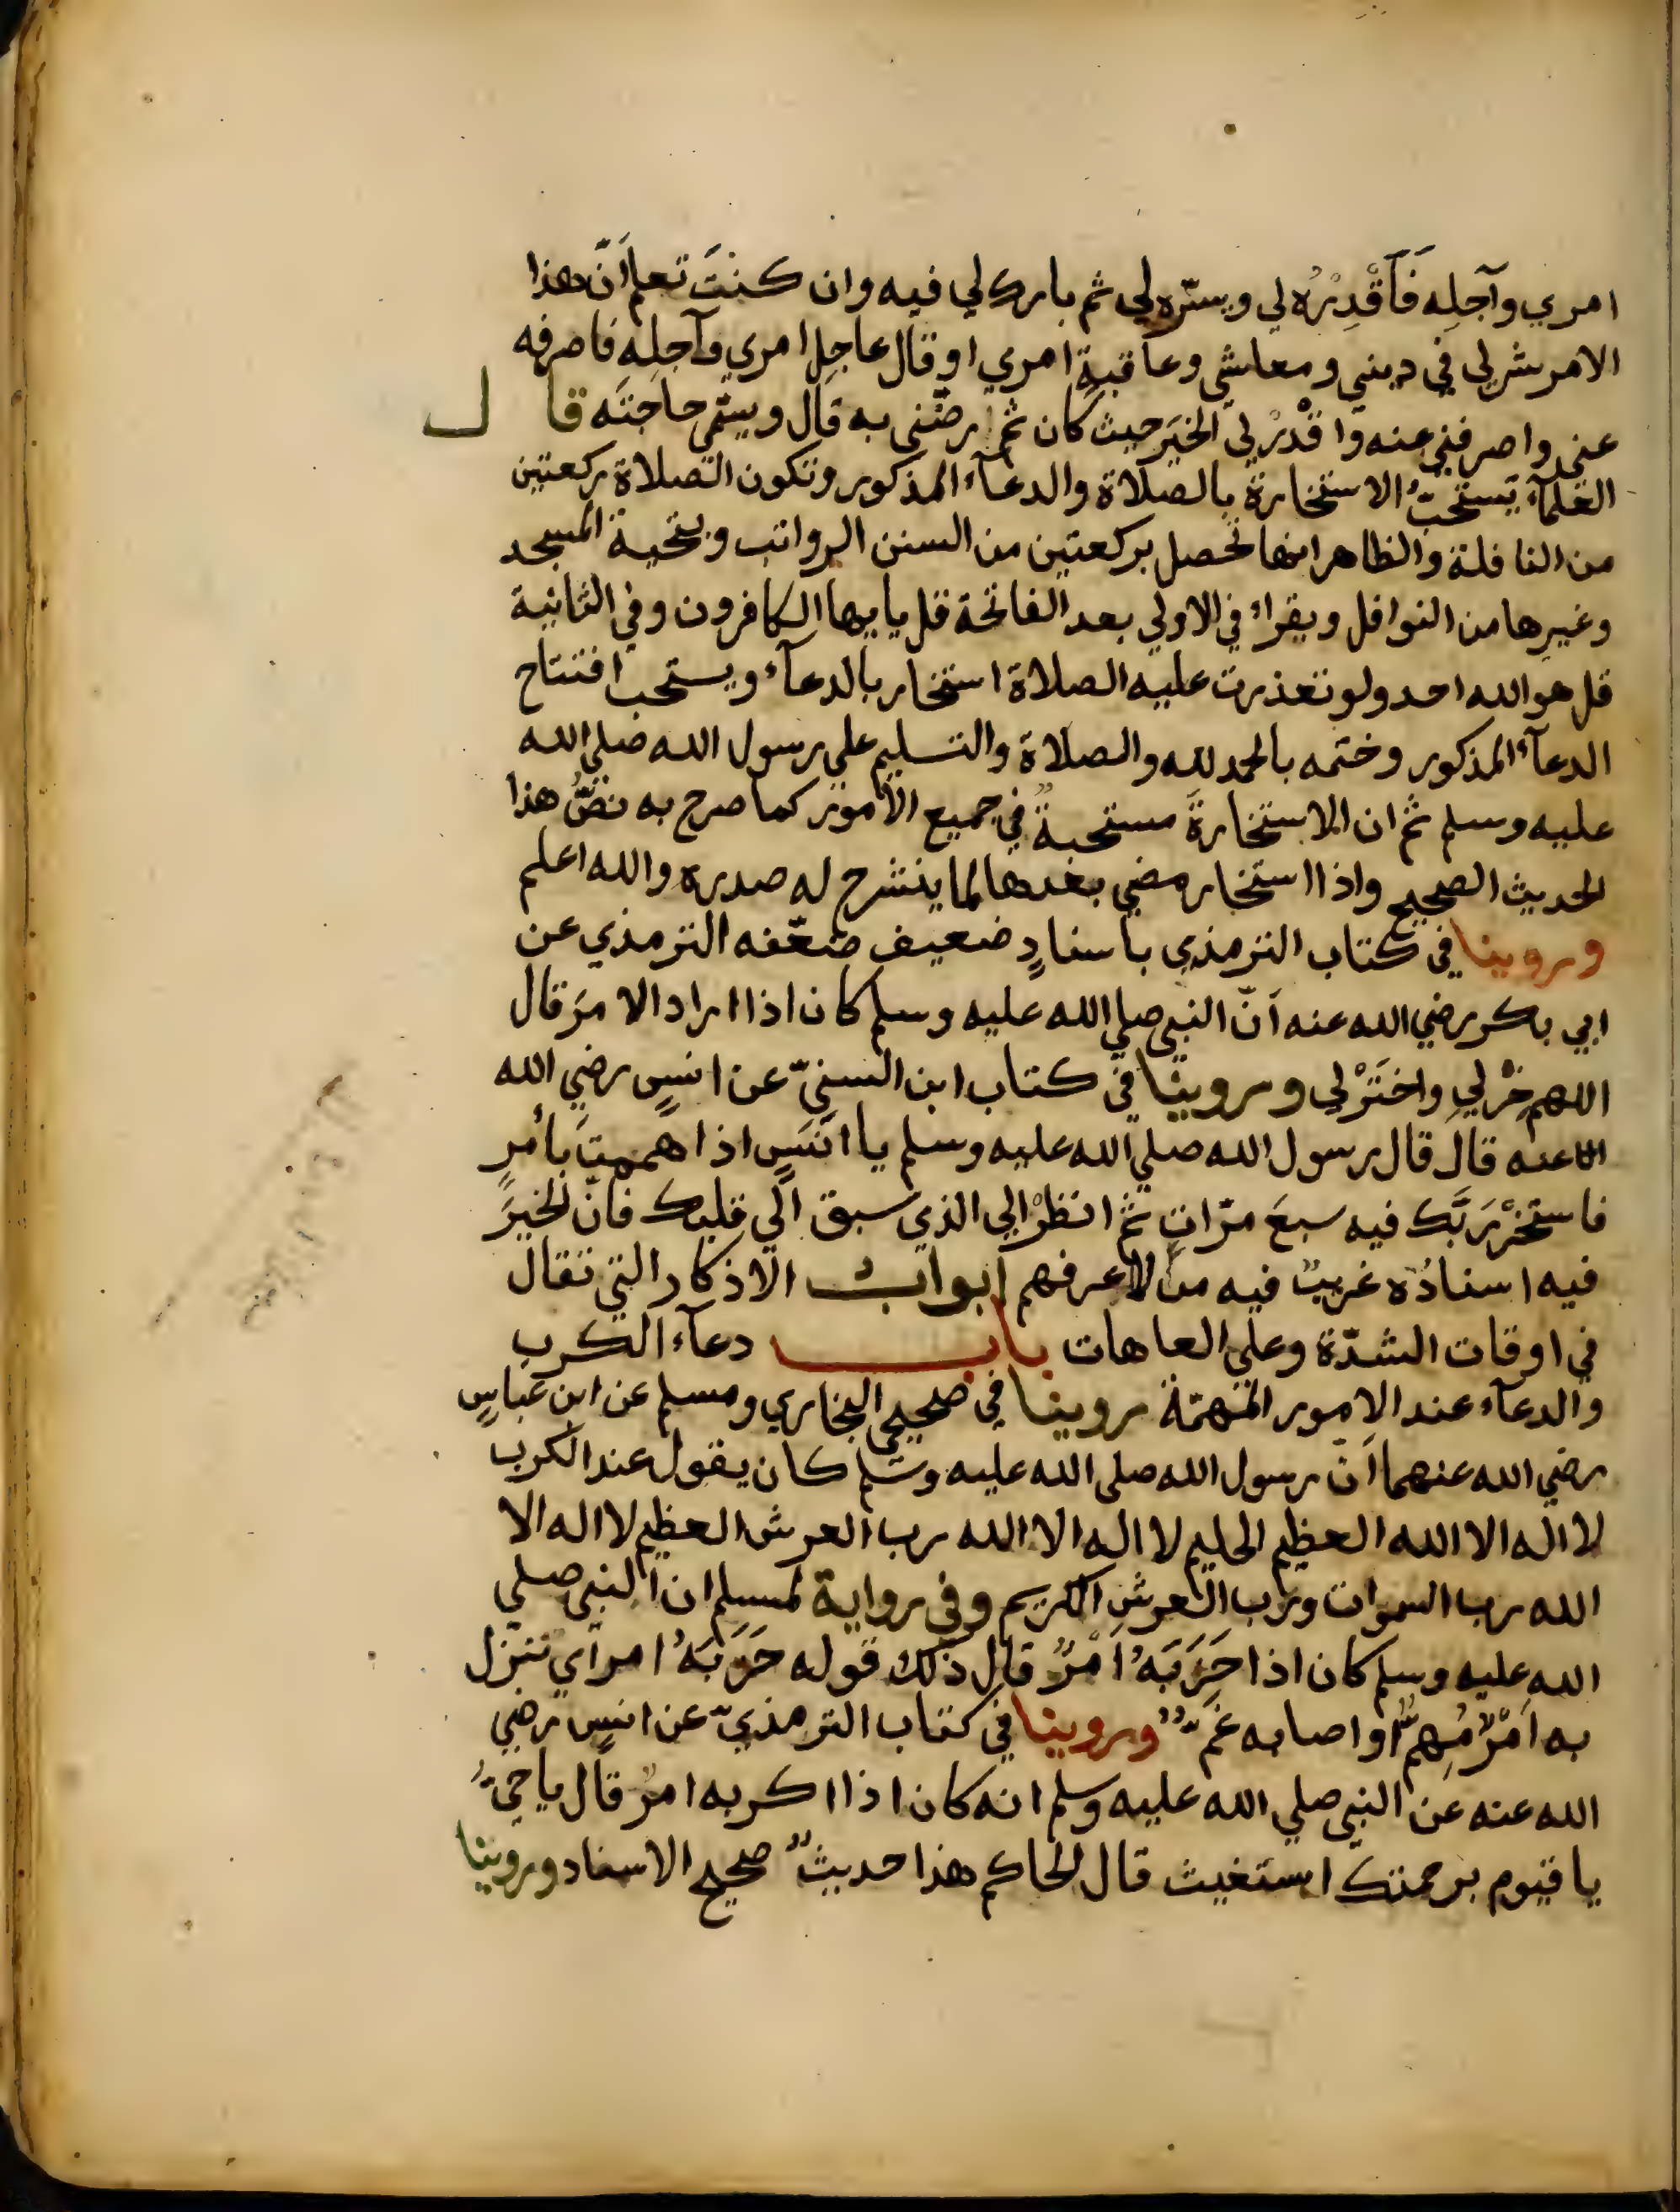 امري وآجلِه فَاَقْدِرْهُ لي ويسّره لي ثم بارك لي فيه وان كنتَ تعلم اَنّ هذا
الامر شر لي في ديني ومعاشي وعاقبةِ امري او قال عاجِل امري وآجلِه فاصرفه
عني واصرفني عنه واقْدُرْ لي الخيَر حيث كان ثم رضّني به قال ويسمّى حاجتَه قال
العلمآء يَستَحبُّ الاستخارة بالصلاة والدعآء المذكور وتكون الصلاة ركعتين
من النافلة والظاهر انها تحصل بركعتين من السنن الرواتب وبتحية المسجد
وغيرِها من النوافل ويقراء في الاولي بعد الفاتحة قل يايها الكافرون وفي الثانية
قل هو الله احد ولو تعذرت عليه الصلاة استخار بالدعآء ويستحب افتتاح
الدعآء المذكور وختمه بالحمد لله والصلاة والتسليم على رسول الله صلي الله
عليه وسلم ثم ان الاستخارةَ مستحبةٌ في جميع الأمور كما صرح به نصُّ هذا
الحديث الصحيح واذا استخار مضي بعدها لما ينشرح له صدره والله اعلم
وروينا في كتاب الترمذي باسنادٍ ضعيف ضعّفه الترمذي عن
ابي بكر رضي الله عنه اَنّ النبي صلي الله عليه وسلم كان اذا اراد الامرَ قال
اللهم خِرْ لي واختَرْ لي وروينا في كتاب ابن السنيّ عن انسٍ رضي الله
عنه قال قال رسول الله صلي الله عليه وسلم يا انَسٍ اذا هممتَ بأمرٍ
فاستخرْ رَبَّك فيه سبعَ مرّاتٍ ثم انظرْ الي الذي سبق الي قلبك فانّ الخيرَ
فيه اسنادُه غريبٌ فيه من لا اعرفهم ابواب الاذكار التي تقال
في اوقات الشدّة وعلي العاهات باب دعآء الكرب
والدعآء عند الامور المُهمّة روينا في صحيحي البخاري ومسلم عن ابن عباسٍ
رضي الله عنهما اَنّ رسول الله صلى الله عليه وسلم كان يقول عند الكرب
لا اله الا الله العظيم الحليم لا اله الا الله رب العرش العظيم لا اله الا
الله رب السموات ورب العرش الكريم وفي رواية لمسلم ان النبي صلي
الله عليه وسلم كان اذا حَزَبَهُ اَمْرٌ قال ذلك قوله حَزَبَهُ امر اي نزل
به اَمْرٌ مُهِمٌّ او اصابه غَمٌّ وروينا في كتاب الترمذيّ عن انسٍ رضي
الله عنه عن النبي صلي الله عليه وسلم انه كان اذا اكربه امرٌ قال يا حيُّ
يا قيوم برحمتك استغيث قال الحاكم هذا حديثٌ صحيح الاسناد وروينا